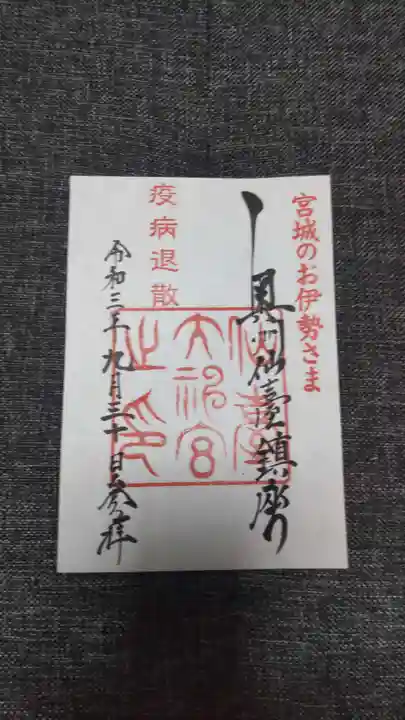 宮城のお伊勢さま
奥州仙臺鎮座
仙臺
大神宮
之印
疫病退散
令和三年九月三十日参拝